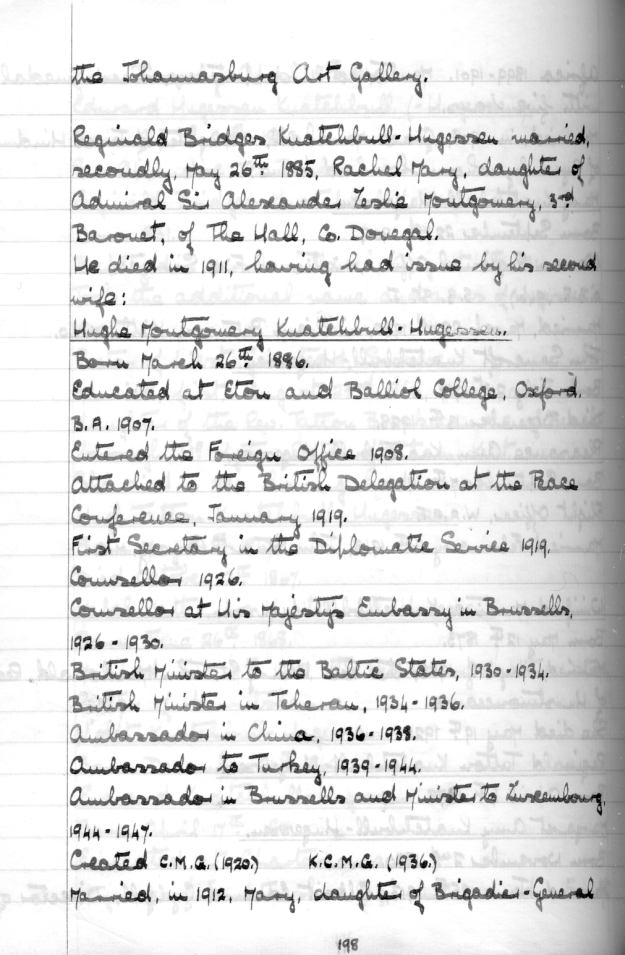 the Johannasburg Art Gallery.
Reginald Bridges Knatchbull-Hugessen married,
secondly, May 26th 1885, Rachel Mary, daughter of
Admiral Sir Alexander Leslie Montgomery, 3rd
Baronet, of The Hall, Co. Donegal.
He died in 1911, having had issue by his second
wife:
Hughe Montgomery Knatchbull-Hugessen.
Born March 26th 1886.
Educated at Eton and Balliol College, Oxford.
B.A. 1907.
Entered the Foreign Office 1908.
Attached to the British Delegation at the Peace
Conference, January 1919.
First Secretary in the Diplomatic Service 1919.
Counsellor 1926.
Counsellor at His Majesty's Embassy in Brussells,
1926-1930.
British Minister to the Baltic States, 1930-1934.
British Minister in Teheran, 1934-1936.
Ambassador in China, 1936-1938.
Ambassador to Turkey, 1939-1944.
Ambassador in Brussells and Minister to Luxembourg,
1944-1947.
Created C.M.G. (1920.) K.C.M.G. (1936.)
Married, in 1912, Mary, daughter of Brigadier-General
198